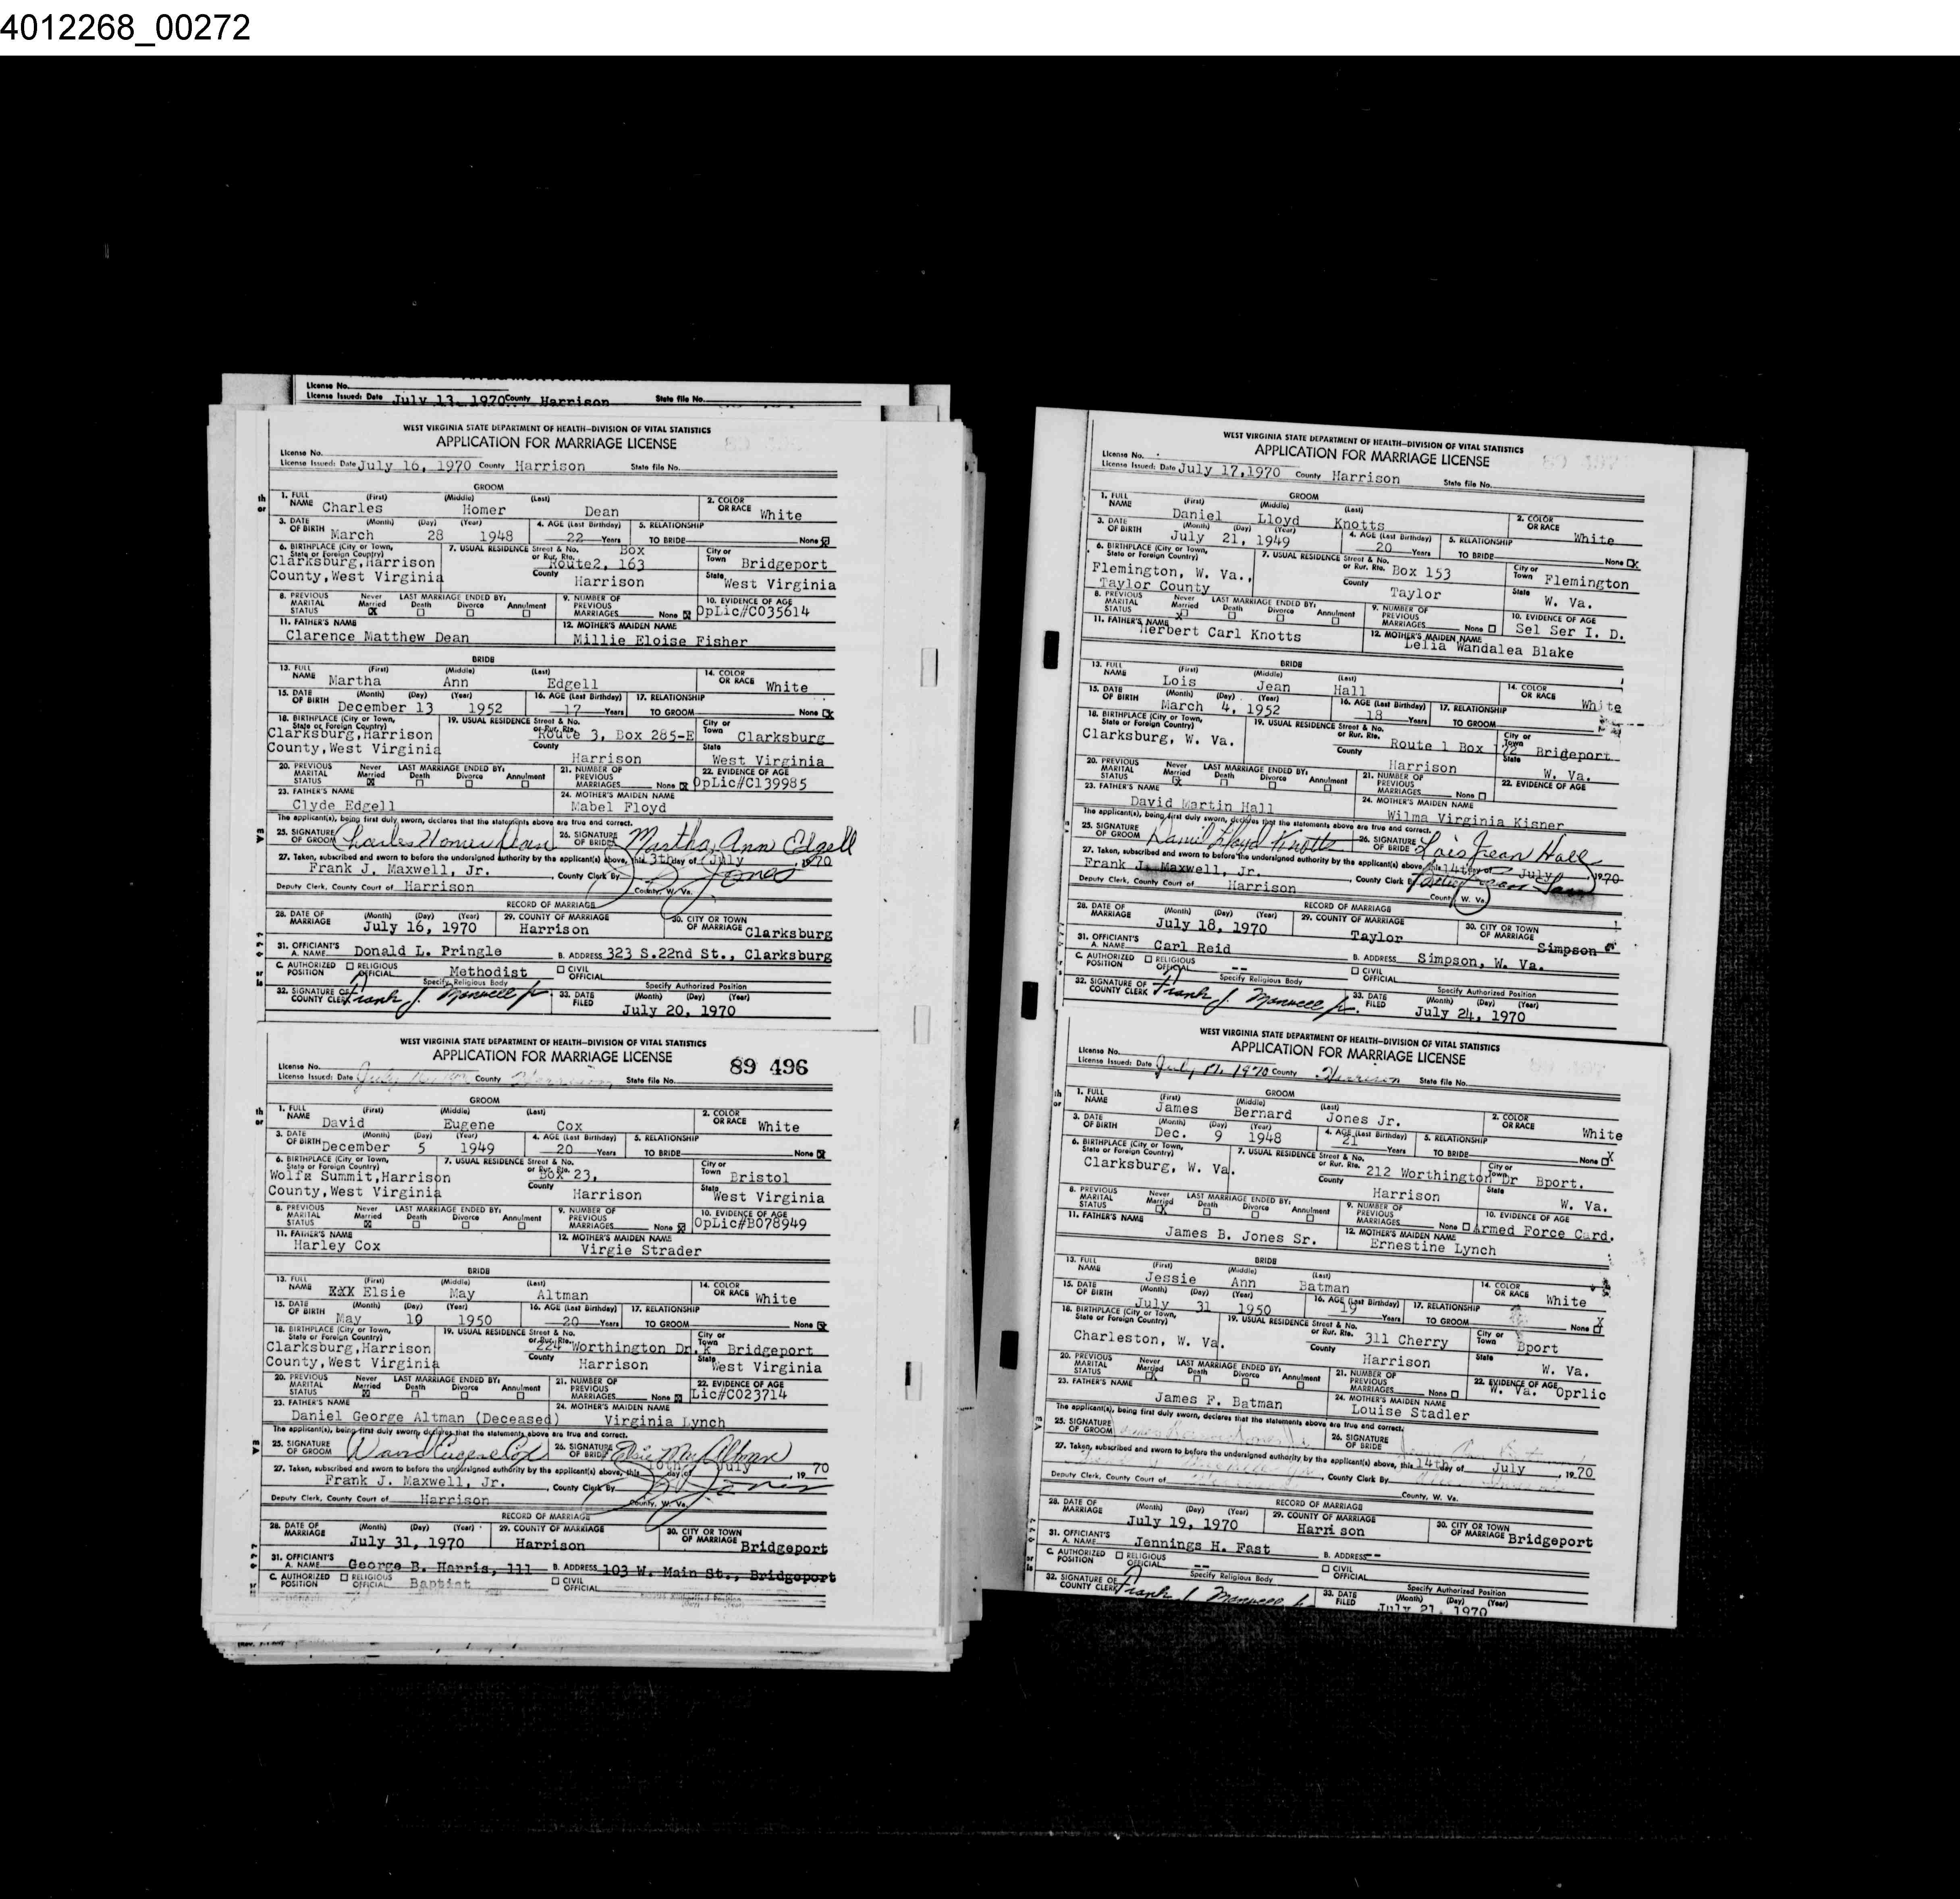 4012268_00272
License No.
License Issued: Date July 13, 1970 County Harrison State file No.
WEST VIRGINIA STATE DEPARTMENT OF HEALTH—DIVISION OF VITAL STATISTICS
APPLICATION FOR MARRIAGE LICENSE
License No.
License Issued: Date July 16, 1970 County Harrison State file No.
GROOM
1. FULL NAME (First) Charles (Middle) Homer (Last) Dean 2. COLOR OR RACE White
3. DATE OF BIRTH (Month) March (Day) 28 (Year) 1948 4. AGE (Last Birthday) 22 Years 5. RELATIONSHIP TO BRIDE None
6. BIRTHPLACE (City or Town, State or Foreign Country) Clarksburg, Harrison County, West Virginia 7. USUAL RESIDENCE Street & No. or Rur. Rte. Box Route2, 163 City or Town Bridgeport
County Harrison State West Virginia
8. PREVIOUS MARITAL STATUS Never Married LAST MARRIAGE ENDED BY: Death Divorce Annulment 9. NUMBER OF PREVIOUS MARRIAGES None 10. EVIDENCE OF AGE OpLic#C035614
11. FATHER'S NAME Clarence Matthew Dean 12. MOTHER'S MAIDEN NAME Millie Eloise Fisher
BRIDE
13. FULL NAME (First) Martha (Middle) Ann (Last) Edgell 14. COLOR OR RACE White
15. DATE OF BIRTH (Month) December (Day) 13 (Year) 1952 16. AGE (Last Birthday) 17 Years 17. RELATIONSHIP TO GROOM None
18. BIRTHPLACE (City or Town, State or Foreign Country) Clarksburg, Harrison County, West Virginia 19. USUAL RESIDENCE Street & No. or Rur. Rte. Route 3, Box 285-E City or Town Clarksburg
County Harrison State West Virginia
20. PREVIOUS MARITAL STATUS Never Married LAST MARRIAGE ENDED BY: Death Divorce Annulment 21. NUMBER OF PREVIOUS MARRIAGES None 22. EVIDENCE OF AGE OpLic#C139985
23. FATHER'S NAME Clyde Edgell 24. MOTHER'S MAIDEN NAME Mabel Floyd
The applicant(s), being first duly sworn, declares that the statements above are true and correct.
25. SIGNATURE OF GROOM Charles Homer Dean 26. SIGNATURE OF BRIDE Martha Ann Edgell
27. Taken, subscribed and sworn to before the undersigned authority by the applicant(s) above, this 13th day of July, 1970
Frank J. Maxwell, Jr., County Clerk By Jones
Deputy Clerk, County Court of Harrison County, W. Va.
RECORD OF MARRIAGE
28. DATE OF MARRIAGE (Month) (Day) (Year) July 16, 1970 29. COUNTY OF MARRIAGE Harrison 30. CITY OR TOWN OF MARRIAGE Clarksburg
31. OFFICIANT'S A. NAME Donald L. Pringle B. ADDRESS 323 S.22nd St., Clarksburg
C. AUTHORIZED POSITION RELIGIOUS OFFICIAL Methodist Specify Religious Body CIVIL OFFICIAL Specify Authorized Position
32. SIGNATURE OF COUNTY CLERK Frank J. Maxwell Jr 33. DATE FILED (Month) (Day) (Year) July 20, 1970
WEST VIRGINIA STATE DEPARTMENT OF HEALTH—DIVISION OF VITAL STATISTICS
APPLICATION FOR MARRIAGE LICENSE 89 496
License No.
License Issued: Date July County Harrison State file No.
GROOM
1. FULL NAME (First) David (Middle) Eugene (Last) Cox 2. COLOR OR RACE White
3. DATE OF BIRTH (Month) December (Day) 5 (Year) 1949 4. AGE (Last Birthday) 20 Years 5. RELATIONSHIP TO BRIDE None
6. BIRTHPLACE (City or Town, State or Foreign Country) Wolfe Summit, Harrison County, West Virginia 7. USUAL RESIDENCE Street & No. or Rur. Rte. Box 23, City or Town Bristol
County Harrison State West Virginia
8. PREVIOUS MARITAL STATUS Never Married LAST MARRIAGE ENDED BY: Death Divorce Annulment 9. NUMBER OF PREVIOUS MARRIAGES None 10. EVIDENCE OF AGE OpLic#B078949
11. FATHER'S NAME Harley Cox 12. MOTHER'S MAIDEN NAME Virgie Strader
BRIDE
13. FULL NAME (First) Elsie (Middle) May (Last) Altman 14. COLOR OR RACE White
15. DATE OF BIRTH (Month) May (Day) 19 (Year) 1950 16. AGE (Last Birthday) 20 Years 17. RELATIONSHIP TO GROOM None
18. BIRTHPLACE (City or Town, State or Foreign Country) Clarksburg, Harrison County, West Virginia 19. USUAL RESIDENCE Street & No. or Rur. Rte. 224 Worthington Dr. City or Town Bridgeport
County Harrison State West Virginia
20. PREVIOUS MARITAL STATUS Never Married LAST MARRIAGE ENDED BY: Death Divorce Annulment 21. NUMBER OF PREVIOUS MARRIAGES None 22. EVIDENCE OF AGE Lic#C023714
23. FATHER'S NAME Daniel George Altman (Deceased) 24. MOTHER'S MAIDEN NAME Virginia Lynch
The applicant(s), being first duly sworn, declares that the statements above are true and correct.
25. SIGNATURE OF GROOM David Eugene Cox 26. SIGNATURE OF BRIDE Elsie May Altman
27. Taken, subscribed and sworn to before the undersigned authority by the applicant(s) above, this day of July, 1970
Frank J. Maxwell, Jr., County Clerk By Jones
Deputy Clerk, County Court of Harrison County, W. Va.
RECORD OF MARRIAGE
28. DATE OF MARRIAGE (Month) (Day) (Year) July 31, 1970 29. COUNTY OF MARRIAGE Harrison 30. CITY OR TOWN OF MARRIAGE Bridgeport
31. OFFICIANT'S A. NAME George B. Harris, 111 B. ADDRESS 103 W. Main St., Bridgeport
C. AUTHORIZED POSITION RELIGIOUS OFFICIAL Baptist CIVIL OFFICIAL
WEST VIRGINIA STATE DEPARTMENT OF HEALTH—DIVISION OF VITAL STATISTICS
APPLICATION FOR MARRIAGE LICENSE
License No.
License Issued: Date July 17,1970 County Harrison State file No.
GROOM
1. FULL NAME (First) Daniel (Middle) Lloyd (Last) Knotts 2. COLOR OR RACE White
3. DATE OF BIRTH (Month) (Day) (Year) July 21, 1949 4. AGE (Last Birthday) 20 Years 5. RELATIONSHIP TO BRIDE None
6. BIRTHPLACE (City or Town, State or Foreign Country) Flemington, W. Va., Taylor County 7. USUAL RESIDENCE Street & No. or Rur. Rte. Box 153 City or Town Flemington
County Taylor State W. Va.
8. PREVIOUS MARITAL STATUS Never Married LAST MARRIAGE ENDED BY: Death Divorce Annulment 9. NUMBER OF PREVIOUS MARRIAGES None 10. EVIDENCE OF AGE Sel Ser I. D.
11. FATHER'S NAME Herbert Carl Knotts 12. MOTHER'S MAIDEN NAME Lelia Wandalea Blake
BRIDE
13. FULL NAME (First) Lois (Middle) Jean (Last) Hall 14. COLOR OR RACE White
15. DATE OF BIRTH (Month) (Day) (Year) March 4, 1952 16. AGE (Last Birthday) 18 Years 17. RELATIONSHIP TO GROOM
18. BIRTHPLACE (City or Town, State or Foreign Country) Clarksburg, W. Va. 19. USUAL RESIDENCE Street & No. or Rur. Rte. Route 1 Box City or Town Bridgeport
County Harrison State W. Va.
20. PREVIOUS MARITAL STATUS Never Married LAST MARRIAGE ENDED BY: Death Divorce Annulment 21. NUMBER OF PREVIOUS MARRIAGES None 22. EVIDENCE OF AGE
23. FATHER'S NAME David Martin Hall 24. MOTHER'S MAIDEN NAME Wilma Virginia Kisner
The applicant(s), being first duly sworn, declares that the statements above are true and correct.
25. SIGNATURE OF GROOM Daniel Lloyd Knotts 26. SIGNATURE OF BRIDE Lois Jean Hall
27. Taken, subscribed and sworn to before the undersigned authority by the applicant(s) above, this 14th day of July, 1970
Frank J. Maxwell, Jr., County Clerk By
Deputy Clerk, County Court of Harrison County, W. Va.
RECORD OF MARRIAGE
28. DATE OF MARRIAGE (Month) (Day) (Year) July 18, 1970 29. COUNTY OF MARRIAGE Taylor 30. CITY OR TOWN OF MARRIAGE Simpson
31. OFFICIANT'S A. NAME Carl Reid B. ADDRESS Simpson, W. Va.
C. AUTHORIZED POSITION RELIGIOUS OFFICIAL -- Specify Religious Body CIVIL OFFICIAL Specify Authorized Position
32. SIGNATURE OF COUNTY CLERK Frank J. Maxwell Jr. 33. DATE FILED (Month) (Day) (Year) July 24, 1970
WEST VIRGINIA STATE DEPARTMENT OF HEALTH—DIVISION OF VITAL STATISTICS
APPLICATION FOR MARRIAGE LICENSE
License No.
License Issued: Date July 17, 1970 County Harrison State file No.
GROOM
1. FULL NAME (First) James (Middle) Bernard (Last) Jones Jr. 2. COLOR OR RACE White
3. DATE OF BIRTH (Month) Dec. (Day) 9 (Year) 1948 4. AGE (Last Birthday) 21 5. RELATIONSHIP TO BRIDE None
6. BIRTHPLACE (City or Town, State or Foreign Country) Clarksburg, W. Va. 7. USUAL RESIDENCE Street & No. or Rur. Rte. 212 Worthington Dr City or Town Bport.
County Harrison State W. Va.
8. PREVIOUS MARITAL STATUS Never Married LAST MARRIAGE ENDED BY: Death Divorce Annulment 9. NUMBER OF PREVIOUS MARRIAGES None 10. EVIDENCE OF AGE Armed Force Card.
11. FATHER'S NAME James B. Jones Sr. 12. MOTHER'S MAIDEN NAME Ernestine Lynch
BRIDE
13. FULL NAME (First) Jessie (Middle) Ann (Last) Batman 14. COLOR OR RACE White
15. DATE OF BIRTH (Month) July (Day) 31 (Year) 1950 16. AGE (Last Birthday) 19 17. RELATIONSHIP TO GROOM None
18. BIRTHPLACE (City or Town, State or Foreign Country) Charleston, W. Va. 19. USUAL RESIDENCE Street & No. or Rur. Rte. 311 Cherry City or Town Bport
County Harrison State W. Va.
20. PREVIOUS MARITAL STATUS Never Married LAST MARRIAGE ENDED BY: Death Divorce Annulment 21. NUMBER OF PREVIOUS MARRIAGES None 22. EVIDENCE OF AGE W. Va. Oprlic
23. FATHER'S NAME James F. Batman 24. MOTHER'S MAIDEN NAME Louise Stadler
The applicant(s), being first duly sworn, declares that the statements above are true and correct.
25. SIGNATURE OF GROOM 26. SIGNATURE OF BRIDE
27. Taken, subscribed and sworn to before the undersigned authority by the applicant(s) above, this 14th day of July, 1970
County Clerk By
Deputy Clerk, County Court of County, W. Va.
RECORD OF MARRIAGE
28. DATE OF MARRIAGE (Month) (Day) (Year) July 19, 1970 29. COUNTY OF MARRIAGE Harrison 30. CITY OR TOWN OF MARRIAGE Bridgeport
31. OFFICIANT'S A. NAME Jennings H. Fast B. ADDRESS --
C. AUTHORIZED POSITION RELIGIOUS OFFICIAL -- Specify Religious Body CIVIL OFFICIAL Specify Authorized Position
32. SIGNATURE OF COUNTY CLERK Frank J. Maxwell Jr 33. DATE FILED (Month) (Day) (Year) July 21, 1970